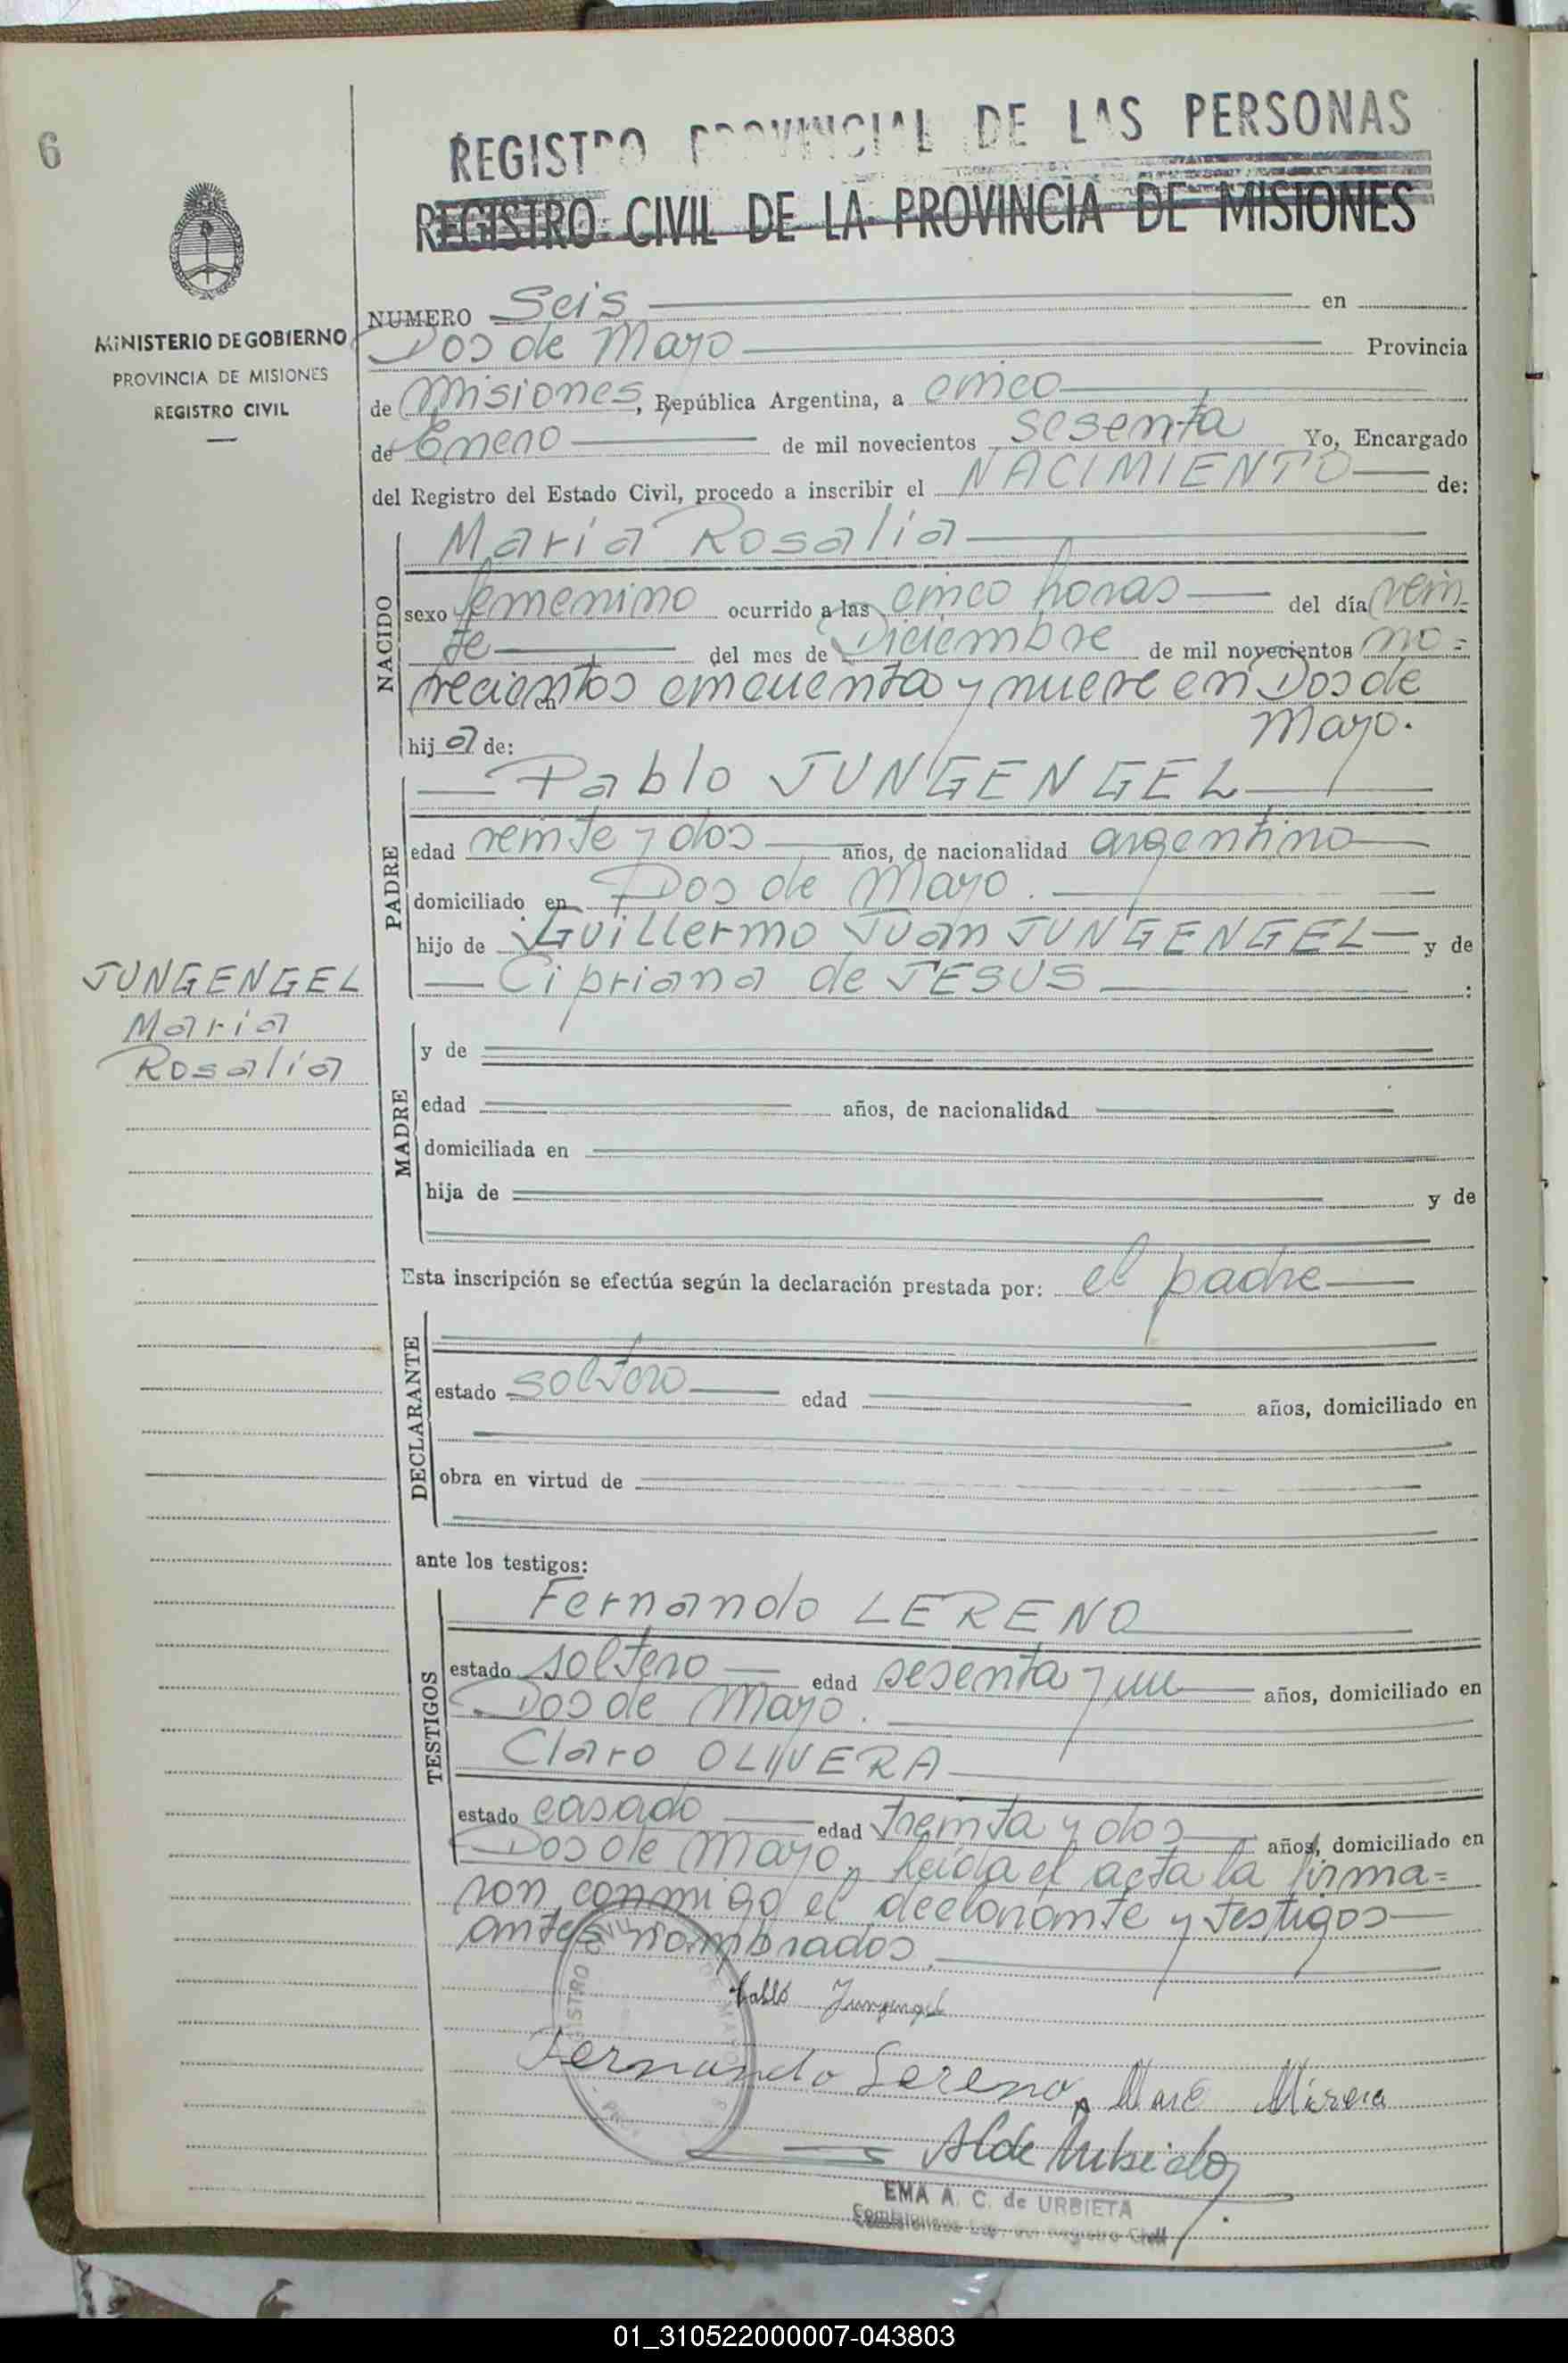 6
REGISTRO PROVINCIAL DE LAS PERSONAS
REGISTRO CIVIL DE LA PROVINCIA DE MISIONES
MINISTERIO DE GOBIERNO
PROVINCIA DE MISIONES
REGISTRO CIVIL
NUMERO Seis en
Dos de Mayo Provincia
de Misiones, República Argentina, a cinco
de Enero de mil novecientos sesenta Yo, Encargado
del Registro del Estado Civil, procedo a inscribir el NACIMIENTO de:
NACIDO
María Rosalía
sexo femenino ocurrido a las cinco horas del día vein
te del mes de Diciembre de mil novecientos no=
vecientos cincuenta y nueve en Dos de
en
Mayo.
hija de:
PADRE
Pablo JUNGENGEL
edad veinte y dos años, de nacionalidad argentino
domiciliado en Dos de Mayo.
hijo de Guillermo Juan JUNGENGEL y de
Cipriana de JESUS :
JUNGENGEL
María
Rosalía
MADRE
y de
edad años, de nacionalidad
domiciliada en
hija de y de
Esta inscripción se efectúa según la declaración prestada por: el padre
DECLARANTE
estado soltero edad años, domiciliado en
obra en virtud de
ante los testigos:
TESTIGOS
Fernando LERENO
estado soltero edad sesenta y un años, domiciliado en
Dos de Mayo.
Claro OLIVERA
estado casado edad treinta y dos años, domiciliado en
Dos de Mayo, leída el acta la firma=
ron conmigo el declarante y testigos
antes nombrados.
Pablo Jungengel
Fernando Lereno
EMA A. C. de URBIETA
Registro Civil
01_310522000007-043803